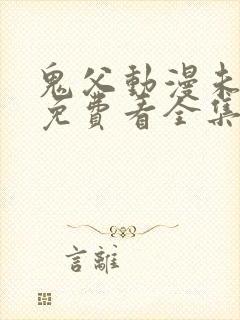 鬼父動漫未
免費看全集
言離